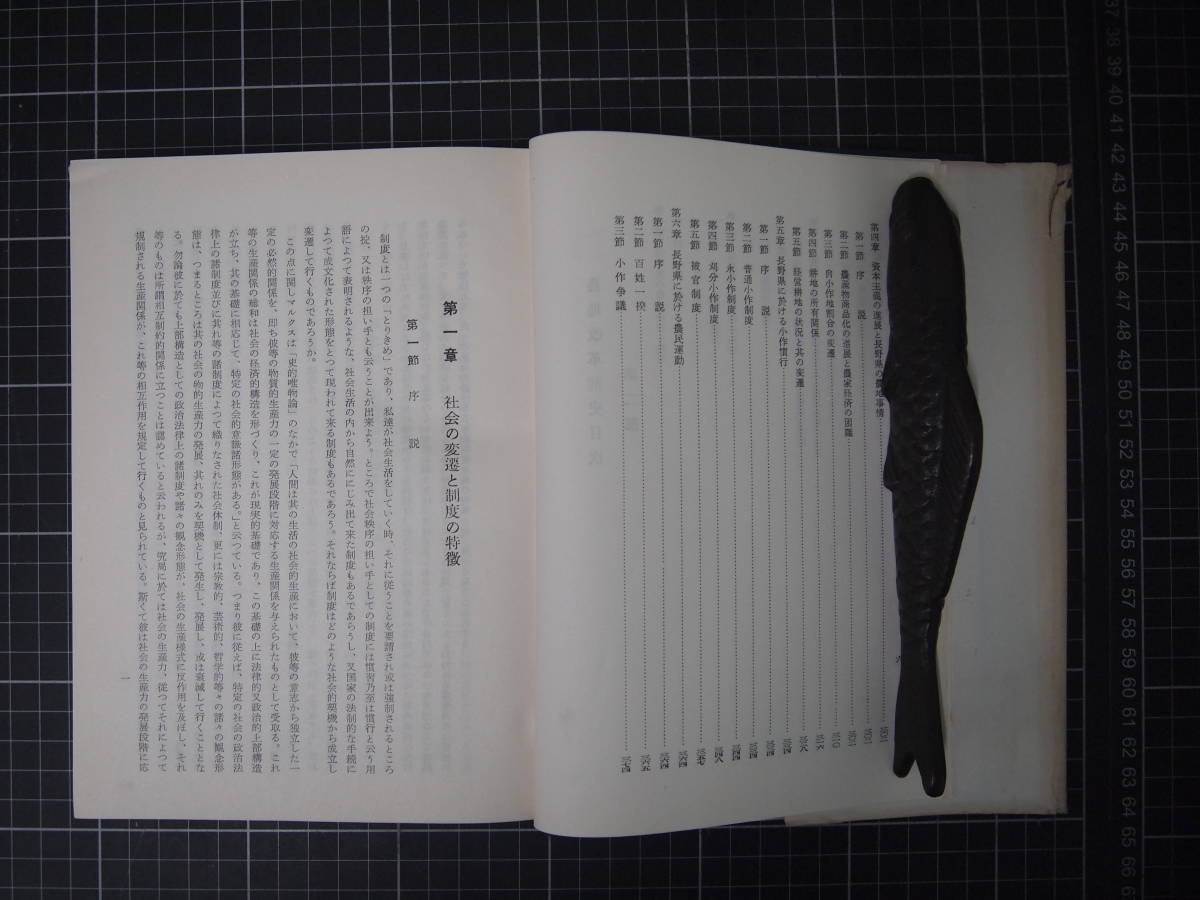 第四章 資本主義の進展と長野県の農地事情
第一節 序説
第二節 農産物商品化の進展と農家経済の困難
第三節 自小作地割合の変遷
第四節 耕地の所有関係
第五節 経営耕地の状況と其の変遷
第五章 長野県に於ける小作慣行
第一節 序説
第二節 普通小作制度
第三節 永小作制度
第四節 刈分小作制度
第五節 被官制度
第六章 長野県に於ける農民運動
第一節 序説
第二節 百姓一揆
第三節 小作争議
六
第一章 社会の変遷と制度の特徴
第一節 序説
制度とは一つの「とりきめ」であり、私達が社会生活をしていく時、それに従うことを要請され或は強制されるところ
の掟、又は秩序の担い手とも云うことが出来よう。ところで社会秩序の担い手としての制度には慣習乃至は慣行と云う用
語によつて表明されるような、社会生活の内から自然ににじみ出て来た制度もあるであらうし、又国家の法制的な手続に
よつて成文化された形態をとつて現われて来る制度もあるであろう。それならば制度はどのような社会的契機から成立し
変遷して行くものであろうか。
この点に関しマルクスは「史的唯物論」のなかで「人間は其の生活の社会的生産において、彼等の意志から独立した一
定の必然的関係を、即ち彼等の物質的生産力の一定の発展段階に対応する生産関係を与えられたものとして受取る。これ
等の生産関係の総和は社会の経済的構造を形づくり、これが現実的基礎であり、この基礎の上に法律的又政治的上部構造
が立ち、其の基礎に相応じて、特定の社会的意識諸形態がある。」と云つている。つまり彼に従えば、特定の社会の政治法
律上の諸制度並びに其れ等の諸制度によつて織りなされた社会体制、更には宗教的、芸術的、哲学的等々の諸々の観念形
態は、つまるところは其の社会の物的生産力の発展、其れのみを契機として発生し、発展し、或は衰滅して行くこととな
る。勿論彼に於ても上部構造としての政治法律上の諸制度や諸々の観念形態が、社会の生産様式に反作用を及ぼし、それ
等のものは所謂相互制約的関係に立つことは認めていると云われるが、究局に於ては社会の生産力、従つてそれによつて
規制される生産関係が、これ等の相互作用を規定して行くものと見られている。斯くて彼は社会の生産力の発展段階に応
一
37
38
39
40
41
42
43
44
45
46
47
48
49
50
51
52
53
54
55
56
57
58
59
60
61
62
63
64
65
66